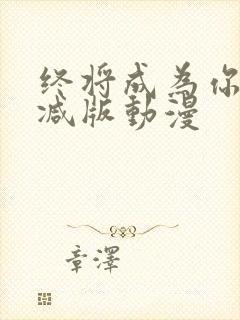 终将成为你
减版動漫
章澤